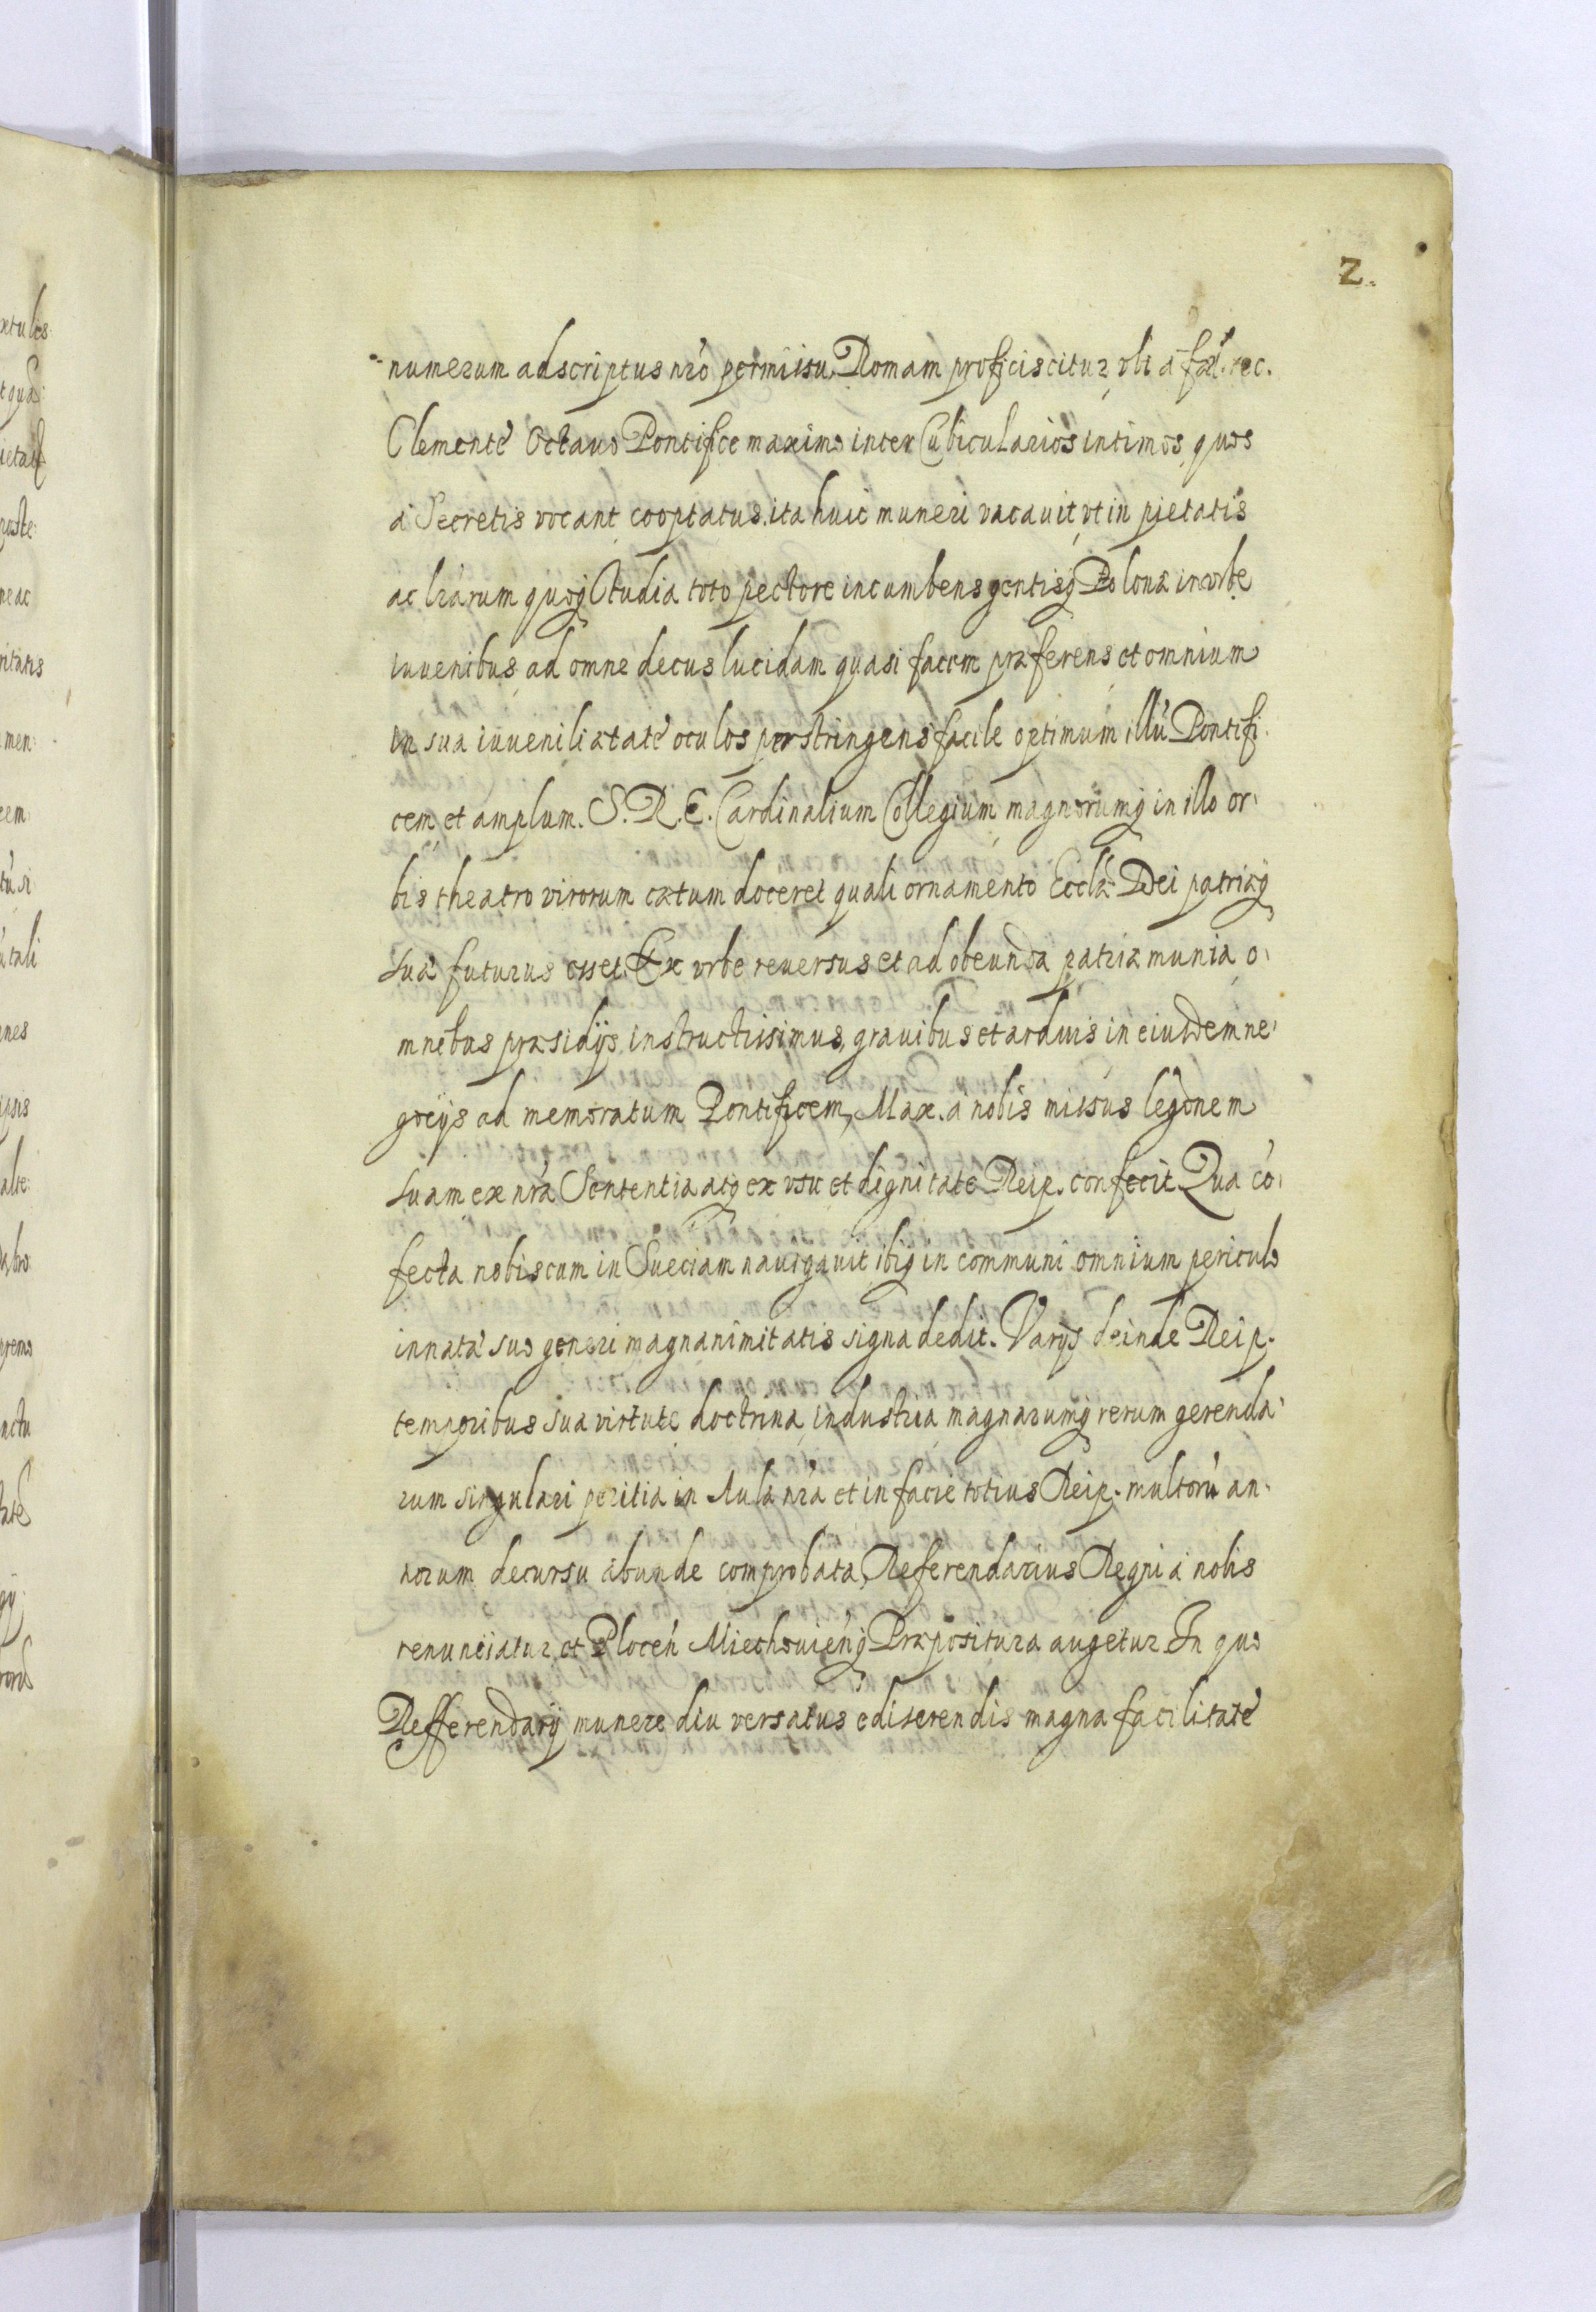 2.
numerum adscriptus nrô permissu, Romam proficiscitur, vbi â fæl. rec.
Clemente Octauo Pontifice maximo inter Cubicularios intimos, quos
â Secretis vocant, cooptatus. ita huic muneri vacauit, vt in pietatis
ac lrârum quoq̃ Studia toto pectore incumbens gentisq̃ Polonæ in vrbe
iuuenibus, ad omne decus lucidam quasi facem præferens et omnium
in sua iuuenili ætate oculos perstringens facile optimum illũ Pontifi-
cem, et amplum. S. R. E. Cardinalium Collegium, magnorumq̃ in illo or-
bis theatro virorum cætum doceret, quali ornamento Eccliæ Dei patriæq̃
suæ futurus esset. Ex vrbe reuersus et ad obeunda patriæ munia, o-
mnibus præsidijs instructissimus, grauibus et arduis in eiusdem ne-
gocijs ad memoratum Pontificem, Max. â nobis missus legõnem
suam ex nrâ Sententia atq̃ ex vsu et dignitate Reip. confecit Qua cõ-
fecta nobiscum in Sueciam nauigauit, ibiq̃ in communi omnium periculo
innatæ suo generi magnanimitatis signa dedit. Varijs deinde Reip.
temporibus sua virtute doctrina, industria magnarumq̃ rerum gerenda-
rum singulari peritia in Aula nrâ et in facie totius Reip. multorũ an-
norum decursu abunde comprobata, Referendarius Regni â nobis
renunciatur, et Plocen̂ Miechouien̂q̃ Præpositura augetur. In quo
Refferendarij munere diu versatus ediserendis magna facilitate